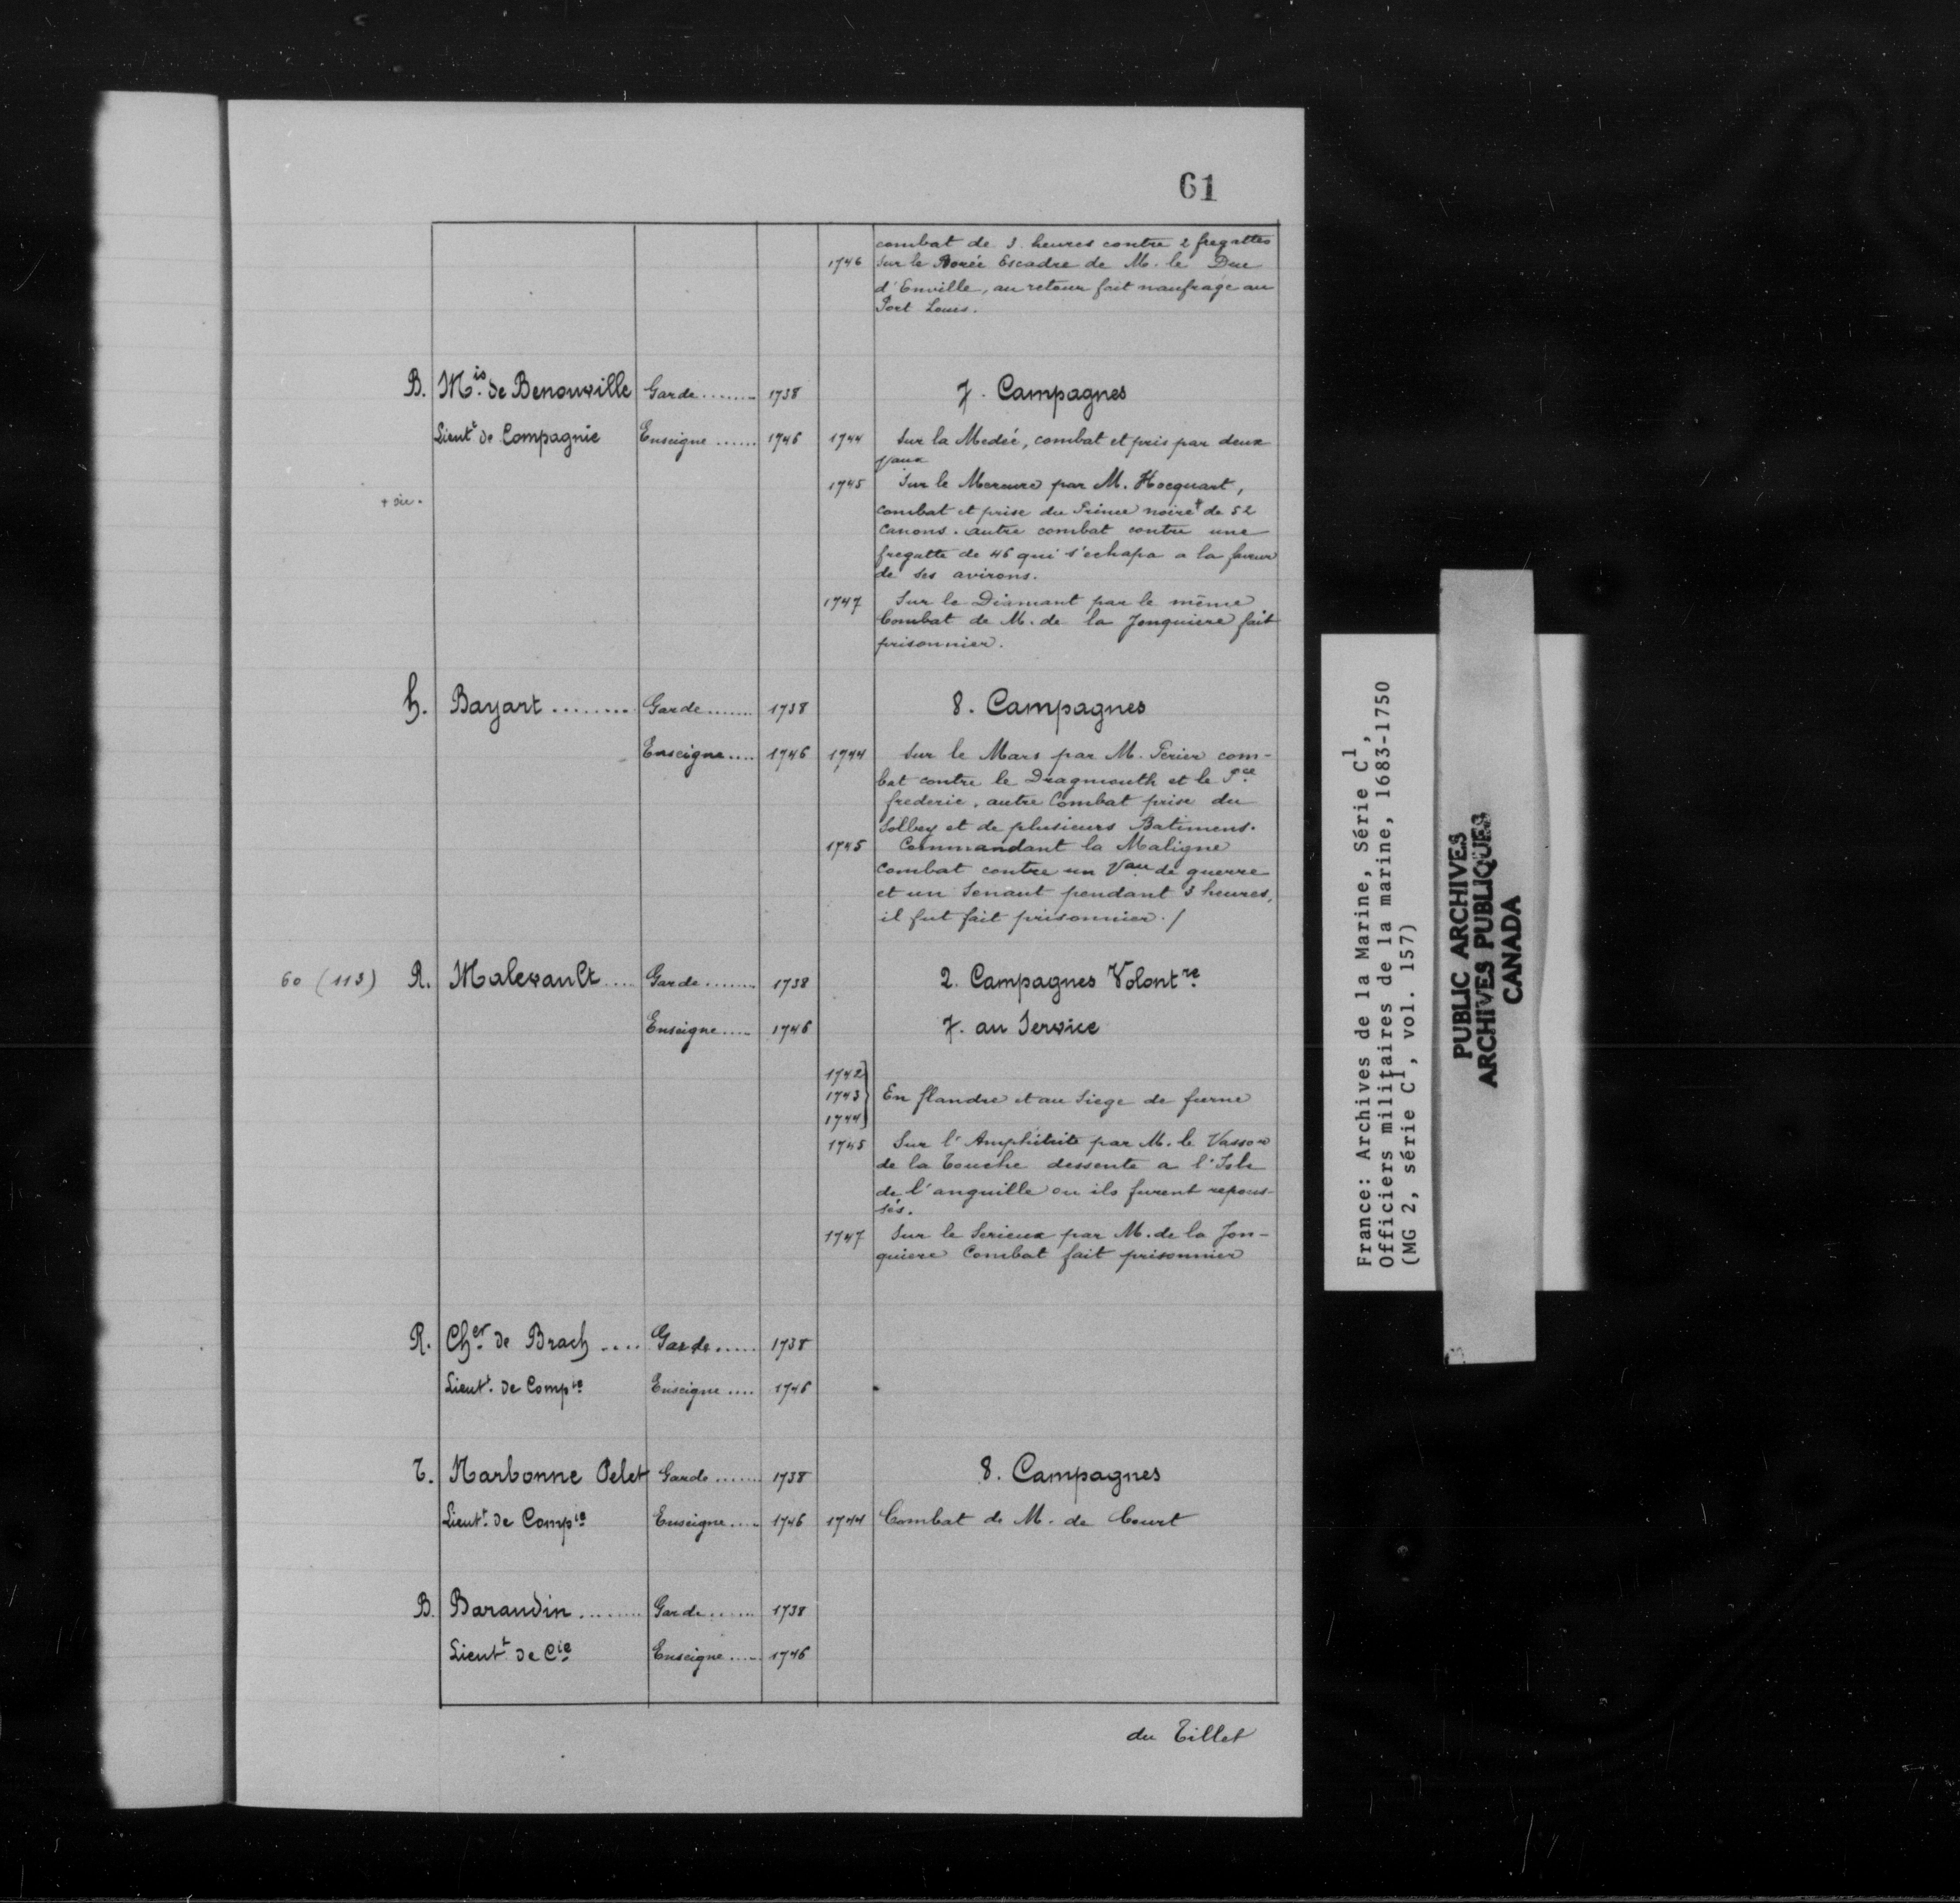 61
combat de 3. heures contre 2 fregattes
1746 Sur le Borée Escadre de M. le Duc
d'Enville, au retour fait naufrage au
Port Louis.
B. Mis. de Benouville Garde........ 1738 7. Campagnes
Lieutt de Compagnie Enseigne ...... 1746 1744 Sur la Medée, combat et pris par deux
Vaux
1745 Sur le Mercure par M. Hocquart,
+ sic.
combat et prise du Prince noire + de 52
canons. autre combat contre une
fregatte de 46 qui s'echapa a la faveur
de ses avirons.
1747 Sur le Diamant par le même
Combat de M. de la Jonquiere fait
prisonnier.
h. Bayart ........ Garde....... 1738 8. Campagnes
Enseigne.... 1746 1744 Sur le Mars par M. Perier com-
bat contre le Dragmouth et le Pce
frederic, autre Combat prise du
Solbey et de plusieurs Batimens.
1745 Commandant la Maligne
Combat contre un Vau de guerre
et un Senaut pendant 3 heures,
il fut fait prisonnier./
60 (113) R. Malevault.... Garde........ 1738 2. Campagnes Volontre
Enseigne..... 1746 7. au Service
1742
1743 En flandre et au Siege de furne
1744
1745 Sur l'Amphitrite par M. le Vassor
de la Touche dessente a l'Isle
de l'anguille ou ils furent repous-
sés.
1747 Sur le Serieux par M. de la Jon-
quiere Combat fait prisonnier
R. Cher de Brach .... Garde..... 1738
Lieutt. de Compie Enseigne .... 1746
T. Narbonne Pelet Garde ....... 1738 8. Campagnes
Lieutt. de Compie Enseigne.... 1746 1744 Combat de M. de Court
B. Baraudin......... Garde....... 1738
Lieutt de Cie Enseigne..... 1746
du Tillet
France: Archives de la Marine, Série C1,
Officiers militaires de la marine, 1683-1750
(MG 2, série C1, vol. 157)
PUBLIC ARCHIVES
ARCHIVES PUBLIQUES
CANADA